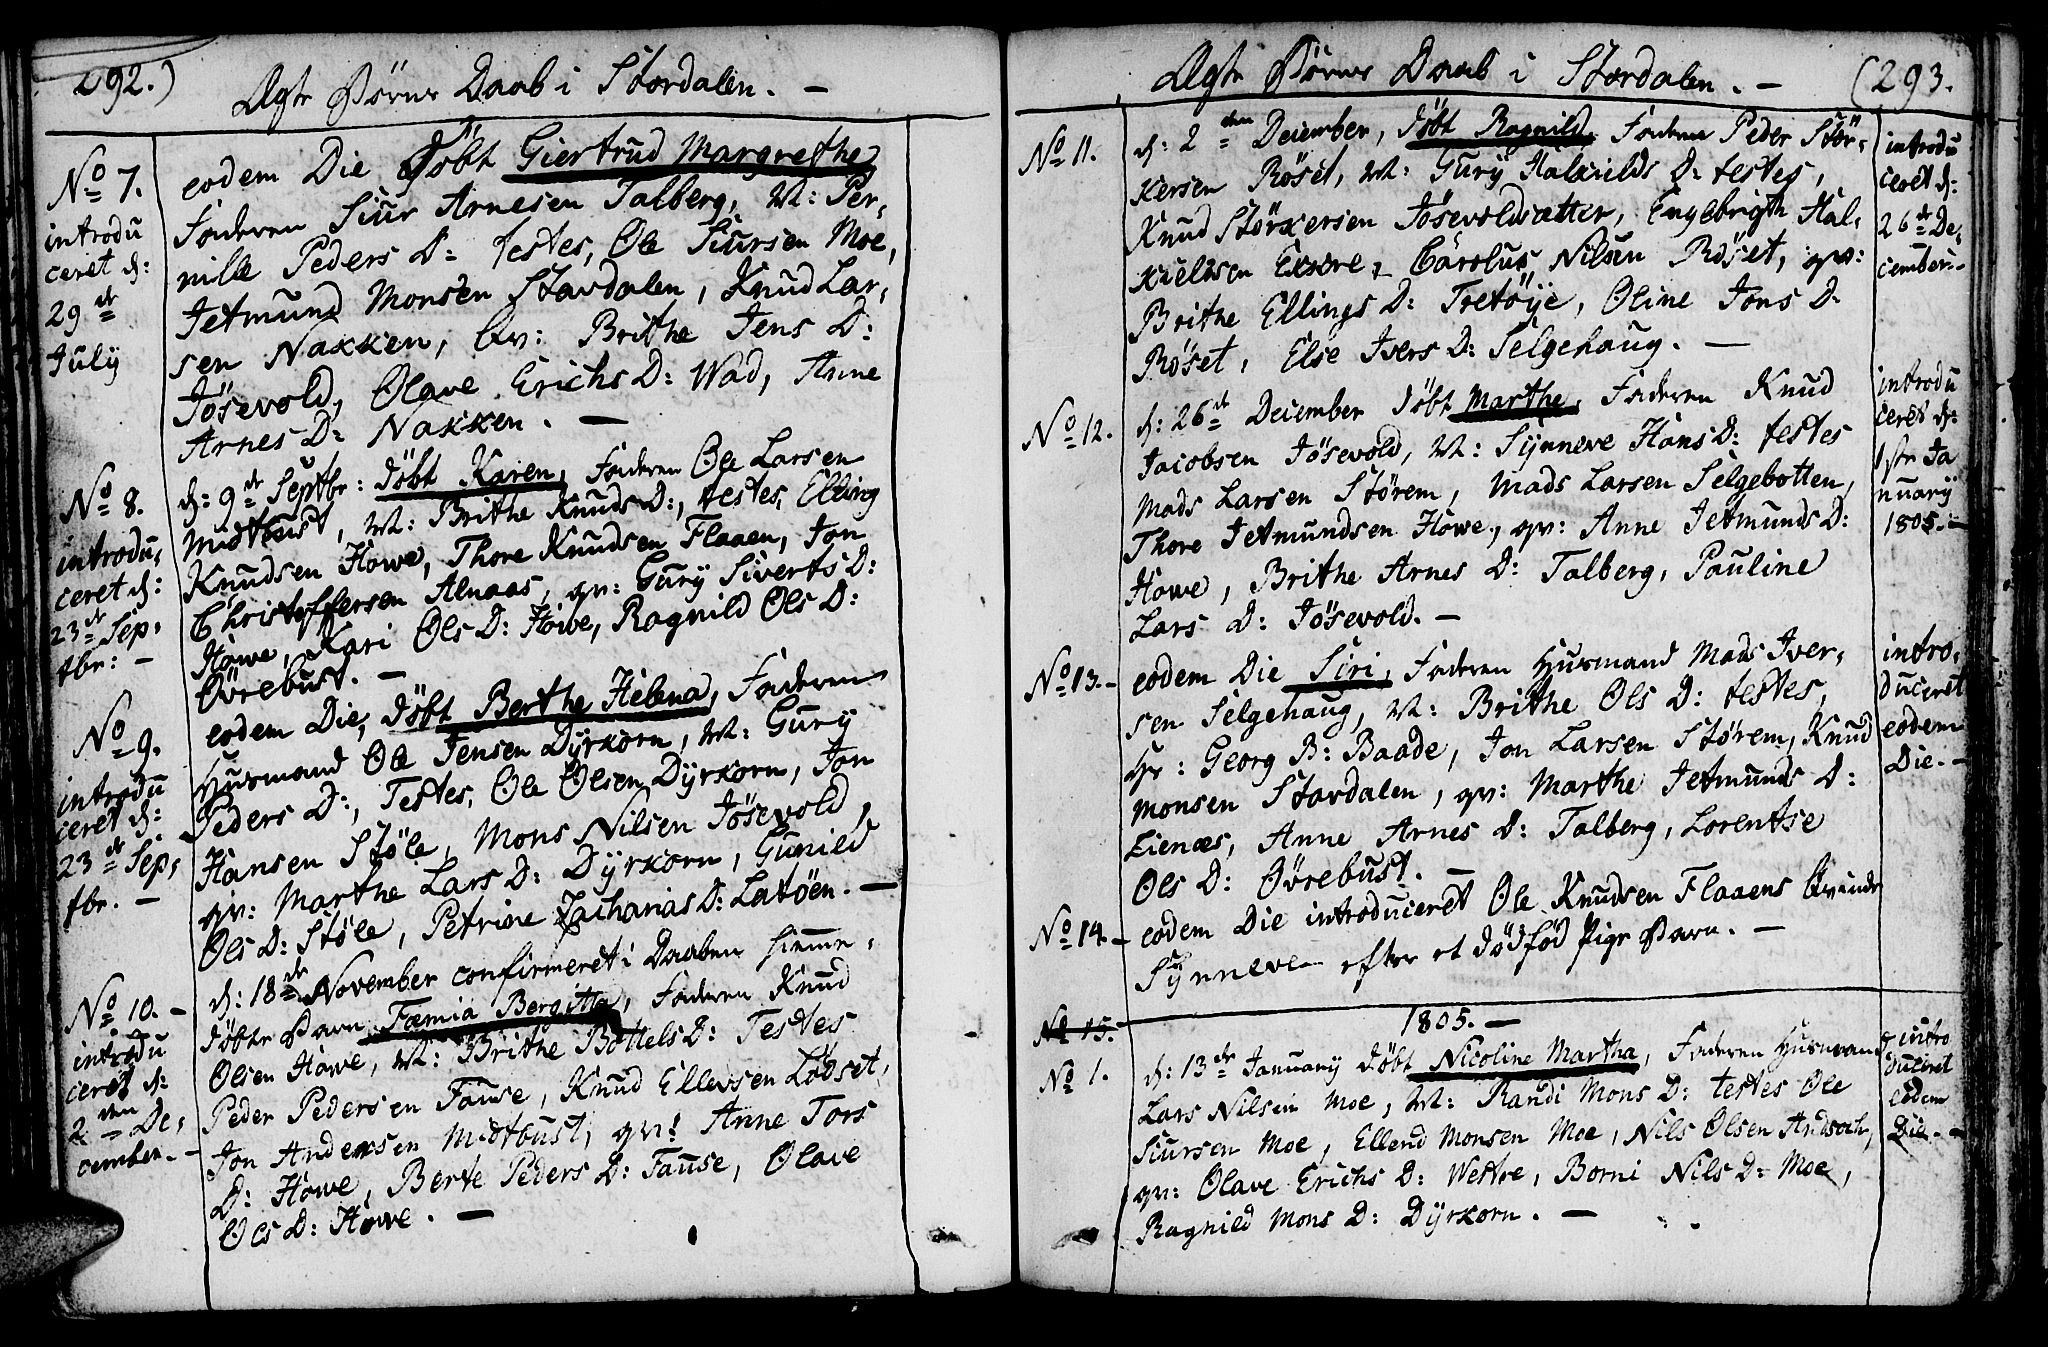 292.)
Ægte Börns Daab i Stordalen. –
No 7.
introdu
ceret d:
29de
July
eodem Die Döbt Giertrud Margrethe,
Faderen Siur Arnesen Talberg, M: Per,
nille Peders D: testes, Ole Siursen Moe,
Jetmund Monsen Stavdalen, Knud Lar,
sen Nakken, qv: Brithe Jens D:
Jösevold, Olave Erichs D: Wad, Anne
Arnes D: Nakken. –
No 8.
introdu,
ceret d:
23de Sep,
tbr: –
d: 9de Septbr: döbt Karen, Faderen Ole Larsen
Midtbust, M: Brithe Knuds D:, testes, Elling
Knudsen Howe, Thore Knudsen Flaaen, Jon
Christoffersen Alnaas, qv: Gury Siverts D:
Howe, Kari Ols D: Howe, Ragnild Ols D:
Övrebust. –
No 9.
introdu
ceret d:
23de Sep,
tbr. –
eodem Die, döbt Berthe Helena, Faderen
Husmand Ole Jensen Dyrkorn, M: Gury
Peders D:, Testes, Ole Olsen Dyrkorn, Jon
Hansen Stöle, Mons Nilsen Jösevold,
qv: Marthe Lars D: Dyrkorn, Gunild
Ols D: Stöle, Petrine Zacharias D: Latöen. –
No 10. –
introdu
ceret d:
2den De,
cember. –
d: 18de November confirmeret i Daaben hieme,
döbte Barn Fæmia Bergitta, Faderen Knud
Olsen Howe, M: Brithe Bottels D: Testes
Peder Pedersen Fause, Knud Ellevsen Lödset,
Jon Andersen Midtbust, qv: Anne Tors
D: Howe, Berte Peders D: Fause, Olave
Ols D: Howe. –
Ægte Börns Daab i Stordalen. – (293.
No 11.
d: 2den December, döbt Ragnild, Faderen Peder Stör,
kersen Röset, M: Gury Halkilds D: testes,
Knud Störkersen Jösevoldsætter, Engebrigth Hal,
kieldsen Exsere, Carolus Nilsen Röset, qv:
Brithe Ellings D: Tretöye, Oline Jons D:
Röset, Else Ivers D: Selgehaug. –
introdu
ceret d:
26de De,
cember. –
No 12.
d: 26de December döbt Marthe, Faderen Knud
Jacobsen Jösevold, M: Synneve Hans D: testes
Mads Larsen Störem, Mads Larsen Selgebotten,
Thore Jetmundsen Howe, qv: Anne Jetmunds D:
Howe, Brithe Arnes D: Talberg, Pauline
Lars D: Jösevold. –
introdu
ceret d:
1ste Ja
nuary
1805. –
No 13. –
eodem Die Siri, Faderen Husmand Mads Iver,
sen Selgehaug, M: Brithe Ols D: testes,
Hr: Georg B: Baade, Jon Larsen Störem, Knud
Monsen Stavdalen, qv: Marthe Jetmunds D:
Lienæs, Anne Arnes D: Talberg, Lorentse
Ols D: Övrebust. –
intro,
duceret
eodem
Die. –
No 14. –
eodem Die introduceret Ole Knudsen Flaaens Qvinde
Synneve efter et dödföd Pige Barn. –
No 15.
1805. –
No 1.
d: 13de January döbt Nicoline Martha, Faderen Husmand
Lars Nilsen Moe, M: Randi Mons D: testes Ole
Siursen Moe, Ellend Monsen Moe, Nils Olsen Andsoch,
qv: Olave Erichs D: Westre, Borni Nils D: Moe,
Ragnild Mons D: Dyrkorn. –
intro
duceret
eodem
Die. –